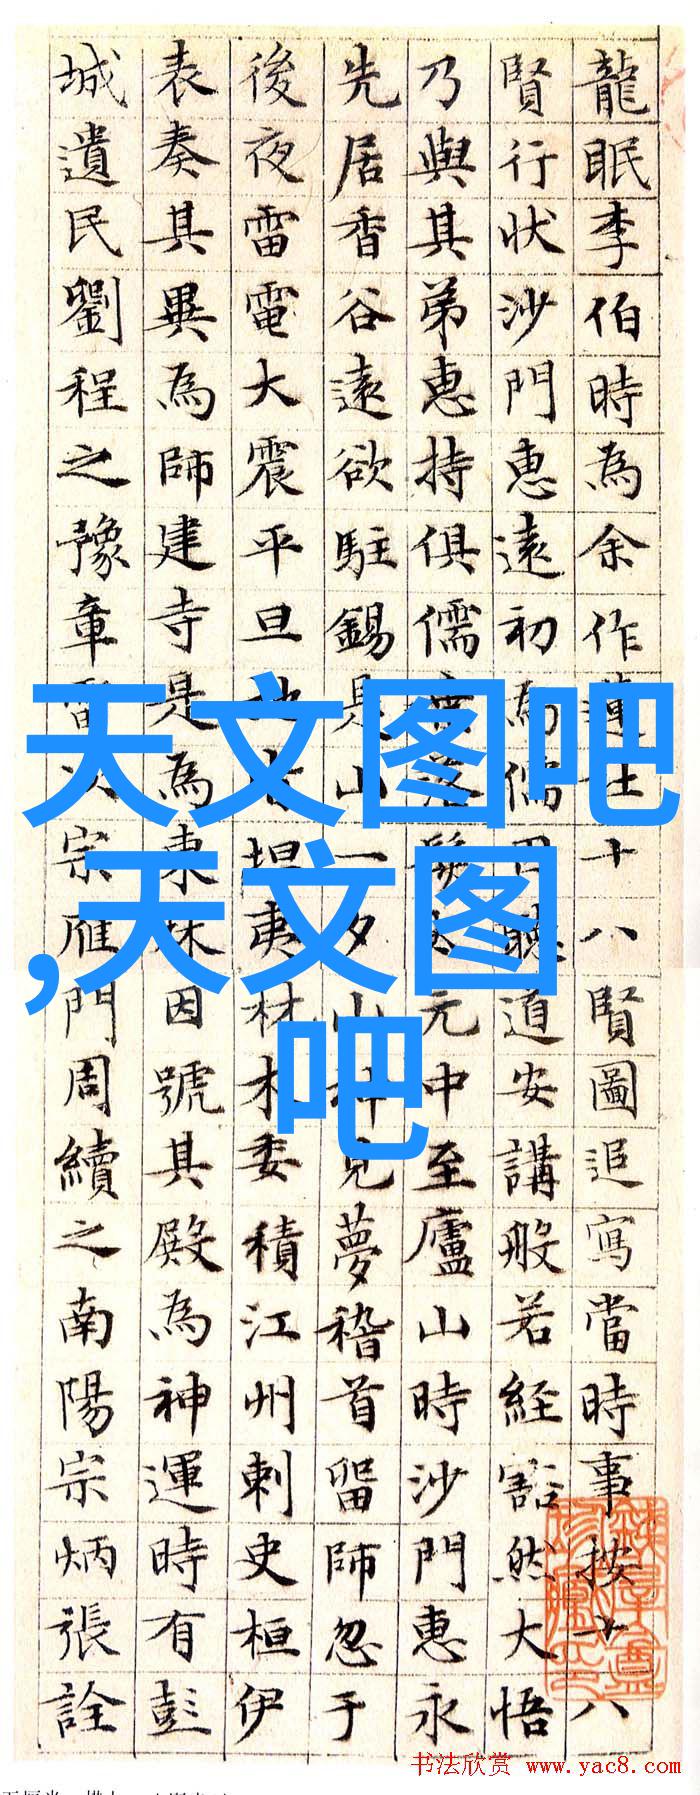 龍眠李伯時為余作蓮社十八賢圖追寫當時事按十八
賢行狀沙門惠遠初為儒因聽道安講般若經豁然大悟
乃與其弟惠持俱儒落髮元中至廬山時沙門惠永
先居香谷遠欲駐錫是山一夕山神見夢稽首留師忽于
後夜雷電大震平旦地坦夷材木委積江州刺史桓伊
表奏其異為師建寺是為東林因號其殿為神運時有彭
城遺民劉程之豫章雷次宗雁門周續之南陽宗炳張詮
天文图吧
,天文图
吧
书法欣赏 www.yac8.com